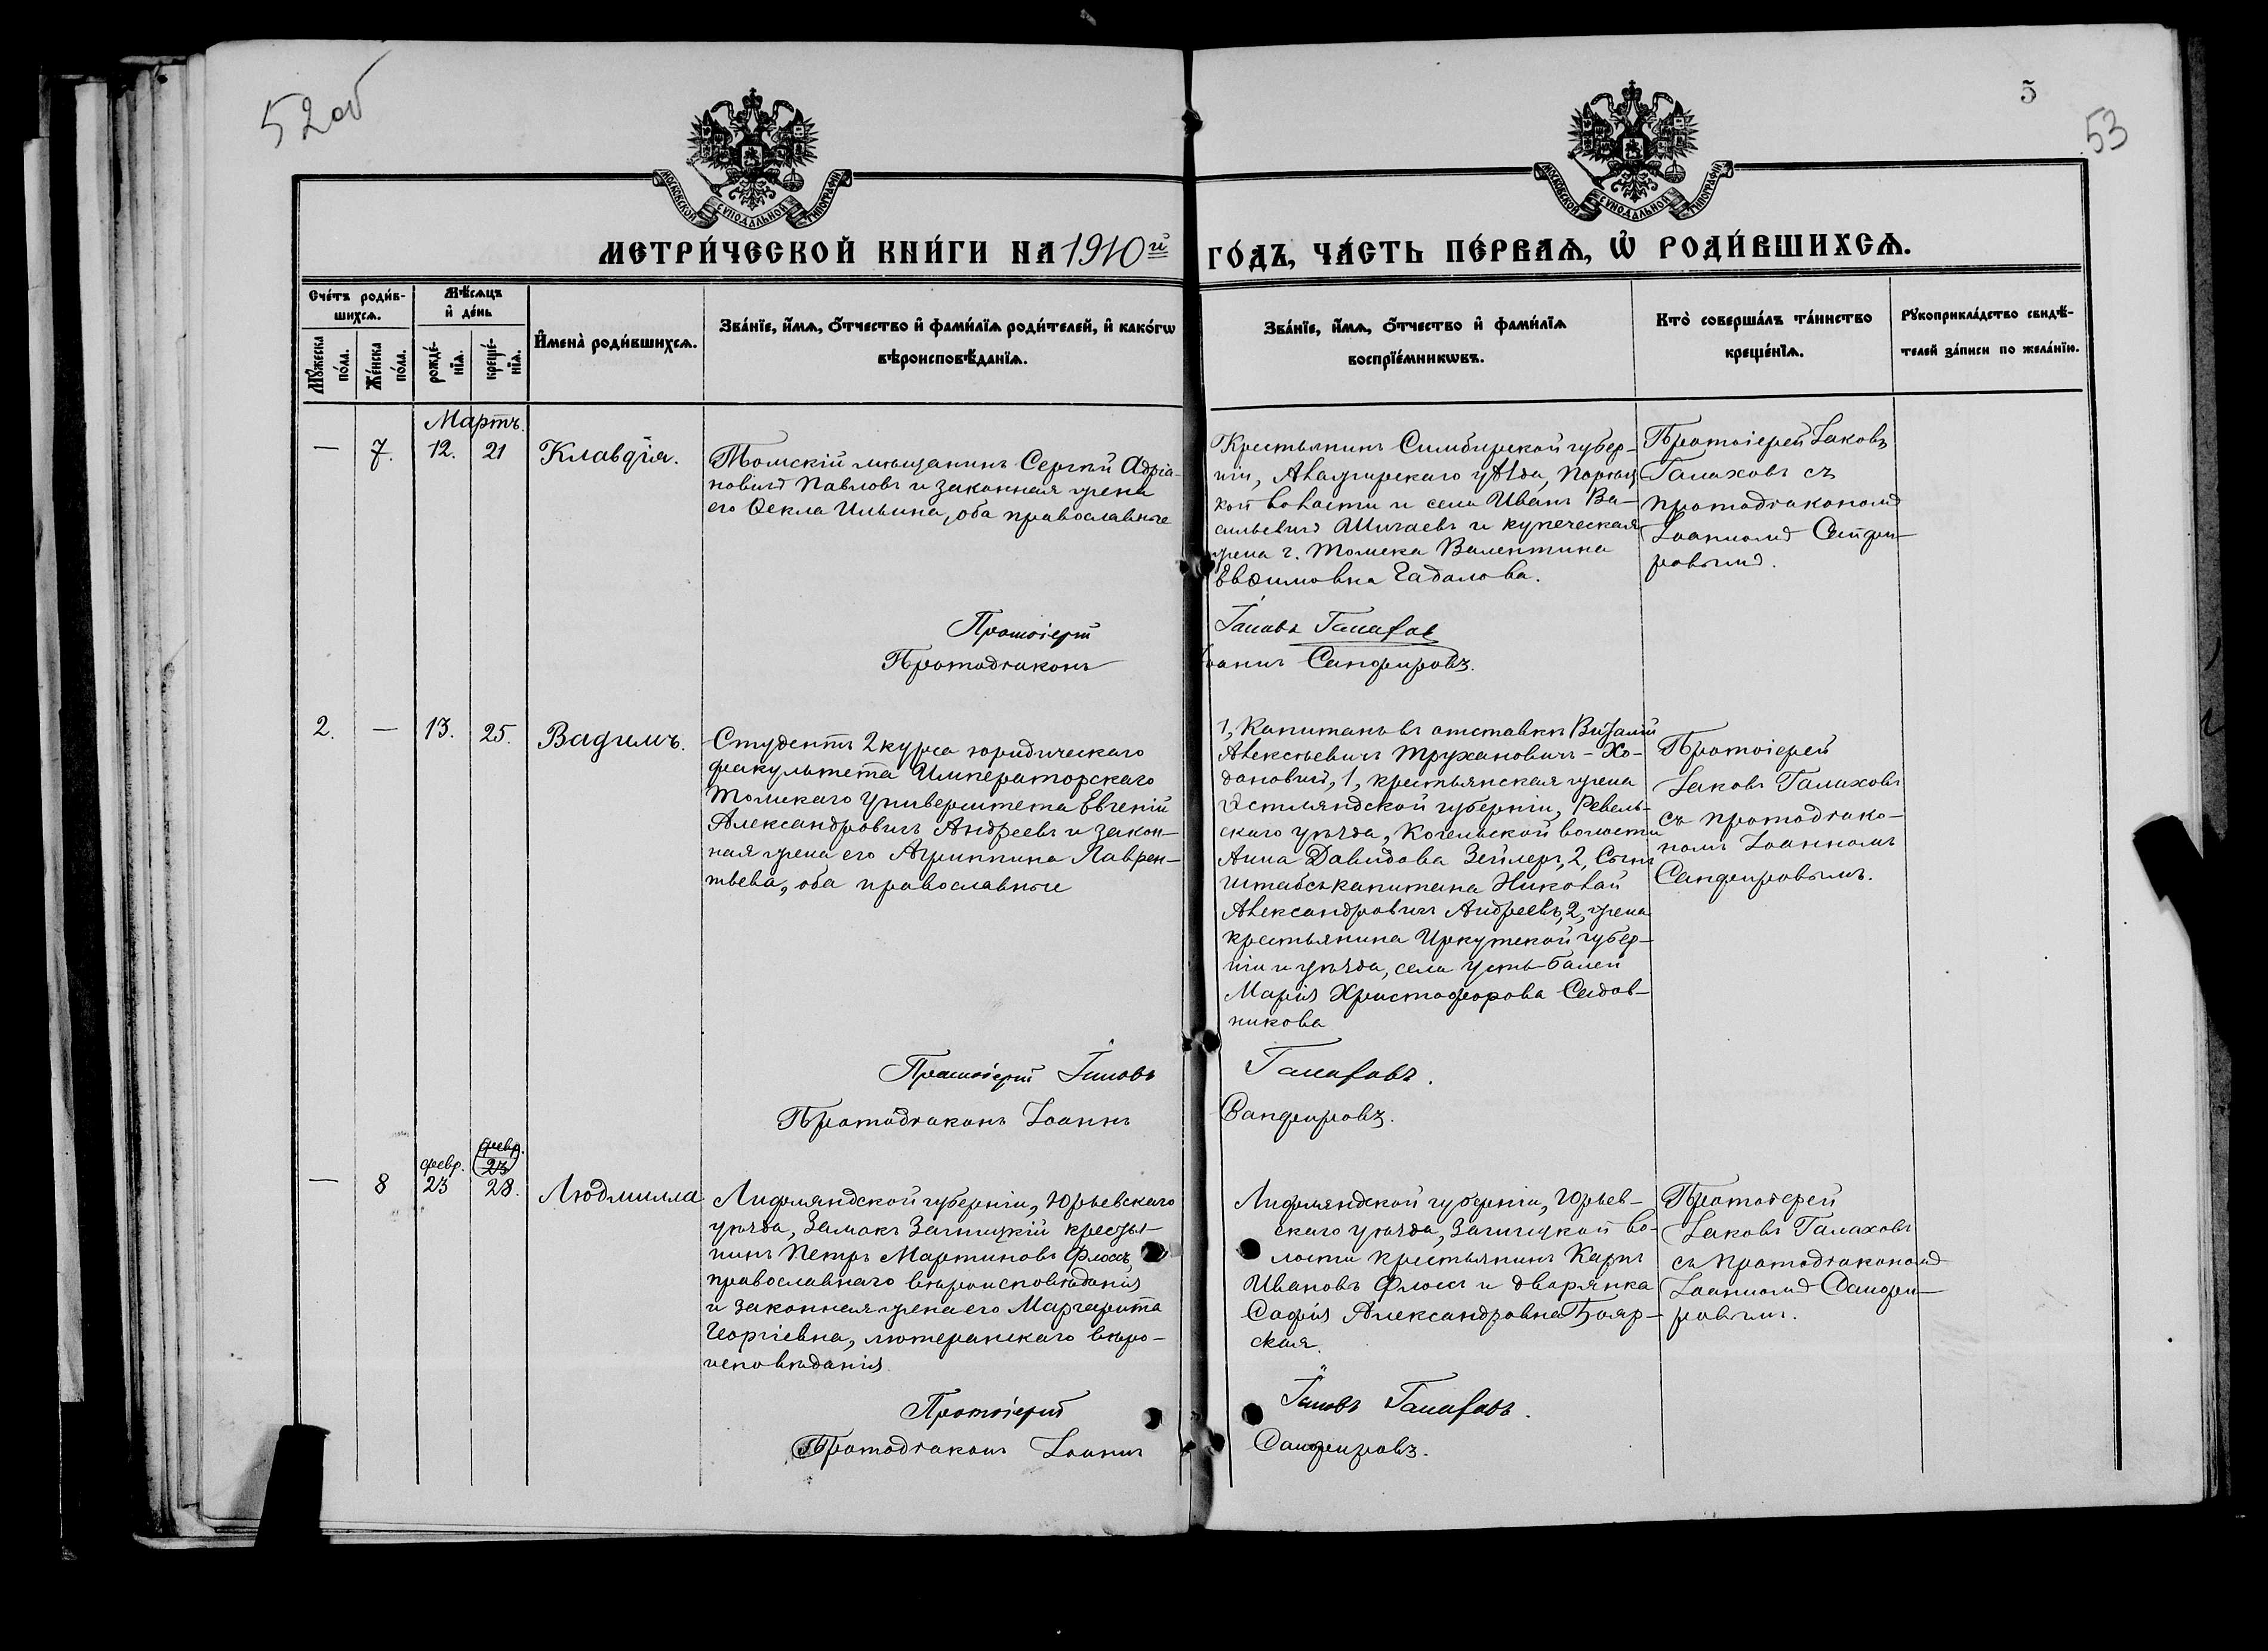 52об
5
53
МОСКОВСКОЙ СѴНОДАЛЬНОЙ ТИПОГРАФІИ
МОСКОВСКОЙ СѴНОДАЛЬНОЙ ТИПОГРАФІИ
МЕТРИ́ЧЕСКОЙ КНИ́ГИ НА 1910й ГО́ДЪ, ЧА́СТЬ ПЕ́РВАѦ, Ѡ҆ РОДИ́ВШИХСѦ.
Сче́тъ роди́в-
шихсѧ.
Мꙋ́жеска по́ла.
Же́нска по́ла.
Мѣ́сѧцъ
и҆ де́нь
рожде́-
нїѧ.
креще́-
нїѧ.
И҆мена̀ роди́вшихсѧ.
Зва́нїе, и҆́мѧ, ѻ҆́тчество и҆ фами́лїѧ роди́телей, и҆ како́гѡ
вѣроисповѣ́данїѧ.
Зва́нїе, и҆́мѧ, ѻ҆́тчество и҆ фами́лїѧ
воспрїе́мникѡвъ.
Кто̀ соверша́лъ та́инство
креще́нїѧ.
Рꙋкоприкла́дство свидѣ́-
телей за́писи по жела́нїю.
Мартъ.
— 7. 12. 21 Клавдія.
Томскій мѣщанинъ Сергѣй Адріа-
новичъ Павловъ и законная жена
его Ѳекла Ильина, оба православные
Крестьянинъ Симбирской губер-
ніи, Алатырскаго уѣзда, Порецк
кой волости и села Иванъ Ва-
сильевичъ Шигаевъ и купеческая
жена г. Томска Валентина
Евѳимовна Гадалова.
Протоіерей Іаковъ
Галаховъ съ
протодіакономъ
Іоанномъ Сапфи-
ровымъ.
Протоіерей Іаковъ Галахов
Протодіаконъ Іоаннъ Сапфировъ.
2. — 13. 25. Вадимъ.
Студентъ 2 курса юридическаго
факультета Императорскаго
Томскаго Университета Евгеній
Александровичъ Андреевъ и закон-
ная жена его Агриппина Лаврен-
тьева, оба православные
1, Капитанъ въ отставкѣ Виталій
Алексѣевичъ Трухановичъ-Хо-
дановичъ, 1, крестьянская жена
Эстляндской губерніи, Ревель-
скаго уѣзда, Когельской волости
Анна Давидова Зейлеръ, 2, Сынъ
штабсъ капитана Николай
Александровичъ Андреевъ, 2, жена
крестьянина Иркутской губер-
ніи и уѣзда, села Усть-Балей
Марія Христофорова Садов-
никова
Протоіерей
Іаковъ Галаховъ
съ протодіако-
номъ Іоанномъ
Сапфировымъ.
Протоіерей Іаковъ Галаховъ.
Протодіаконъ Іоаннъ Сапфировъ.
февр.
23
— 8 февр. 23 28. Людмилла
Лифляндской губерніи, Юрьевскаго
уѣзда, Замокъ Загницкій крестья-
нинъ Петръ Мартиновъ Флоссъ,
православнаго вѣроисповѣданія
и законная жена его Маргарита
Георгіевна, лютеранскаго вѣро-
исповѣданія.
Лифляндской губерніи, Юрьев-
скаго уѣзда, Загницкой во-
лости крестьянинъ Карлъ
Ивановъ Флоссъ и дворянка
Софія Александровна Бояр-
ская.
Протоіерей
Іаковъ Галаховъ
съ протодіакономъ
Іоанномъ Сапфи-
ровымъ.
Протоіерей Іаковъ Галаховъ.
Протодіаконъ Іоаннъ Сапфировъ.